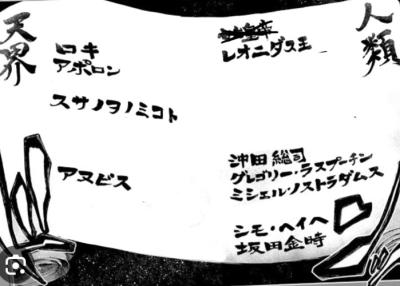 人類
レオニダス王
沖田総司
グレゴリー・ラスプーチン
ミシェル・ノストラダムス
シモ・ヘイヘ
坂田金時
天界
ロキ
アポロン
スサノヲノミコト
アヌビス